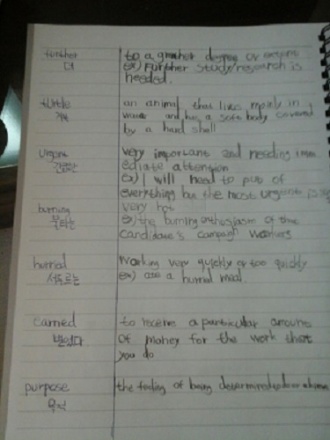 further
더
to a greater degree or extent
ex) Further study/research is
needed.
turtle
an animal that lives mainly in
water and has a soft body covered
by a hard shell
Urgent
very important and needing imm
ediate attention
ex) I will need to put of
everything but the most urgent
burning
불타는
very hot
ex) the burning enthusiasm of the
candidate's campaign workers
hurried
서두르는
Working very quickly or too quickly
ex) a hurried meal
earned
벌었다
to receive a particular amount
of money for the work that
you do
purpose
목적
the feeling of being determined